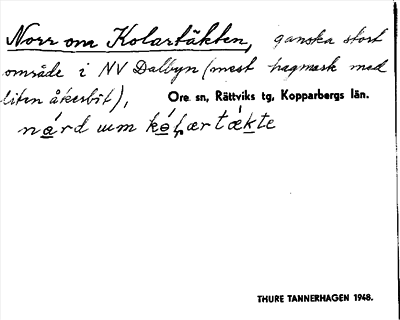 Norr om Kolartäkten, ganska stort
område i NV Dalbyn (mest hagmark med
liten åkerbit), Ore sn, Rättviks tg, Kopparbergs län.
nård um kólartækte
THURE TANNERHAGEN 1948.